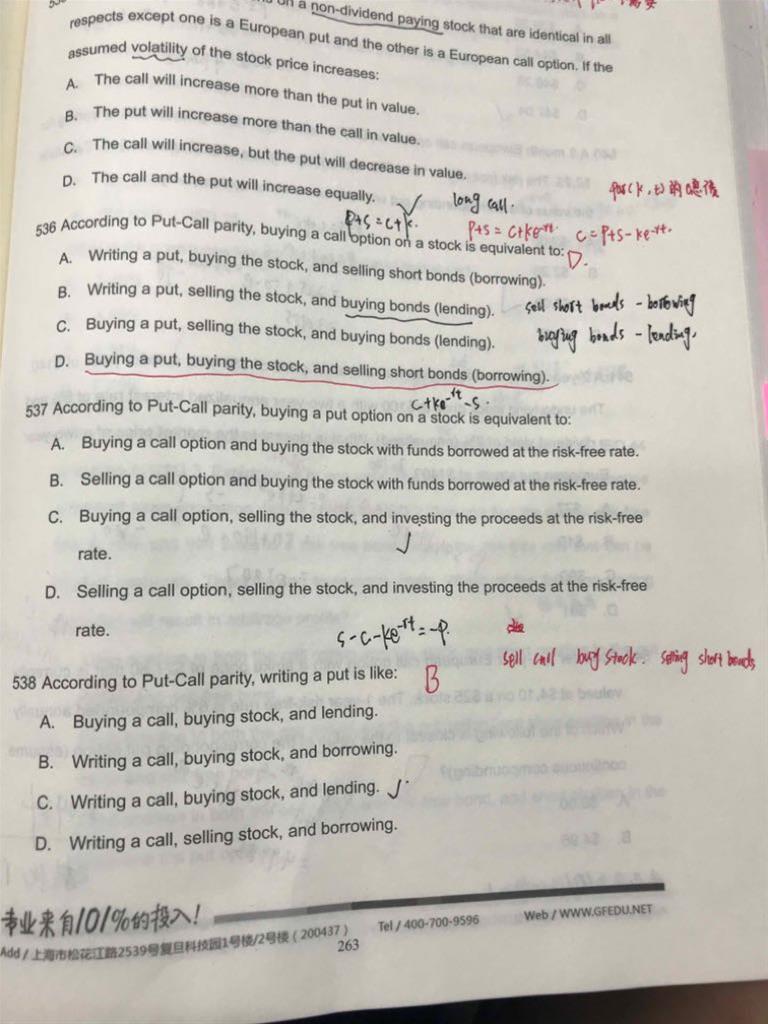 on a non-dividend paying stock that are identical in all
respects except one is a European put and the other is a European call option. If the
assumed volatility of the stock price increases:
A. The call will increase more than the put in value.
B. The put will increase more than the call in value.
C. The call will increase, but the put will decrease in value.
D. The call and the put will increase equally. ✓
long call.
P+S=C+K.
P+S=C+Ke^-rt. C=P+S-Ke^-rt.
536 According to Put-Call parity, buying a call option on a stock is equivalent to: D.
A. Writing a put, buying the stock, and selling short bonds (borrowing).
B. Writing a put, selling the stock, and buying bonds (lending).
sell short bonds - borrowing
C. Buying a put, selling the stock, and buying bonds (lending).
buying bonds - lending.
D. Buying a put, buying the stock, and selling short bonds (borrowing).
C+Ke^-rt-S.
537 According to Put-Call parity, buying a put option on a stock is equivalent to:
A. Buying a call option and buying the stock with funds borrowed at the risk-free rate.
B. Selling a call option and buying the stock with funds borrowed at the risk-free rate.
C. Buying a call option, selling the stock, and investing the proceeds at the risk-free
rate. ✓
D. Selling a call option, selling the stock, and investing the proceeds at the risk-free
rate.
S-C-Ke^-rt=-P.
sell call buy stock. selling short bonds
538 According to Put-Call parity, writing a put is like: B
A. Buying a call, buying stock, and lending.
B. Writing a call, buying stock, and borrowing.
C. Writing a call, buying stock, and lending. ✓
D. Writing a call, selling stock, and borrowing.
专业来自101%的投入!
Add / 上海市松花江路2539号复旦科技园1号楼/2号楼 ( 200437 ) Tel / 400-700-9596 Web / WWW.GFEDU.NET
263